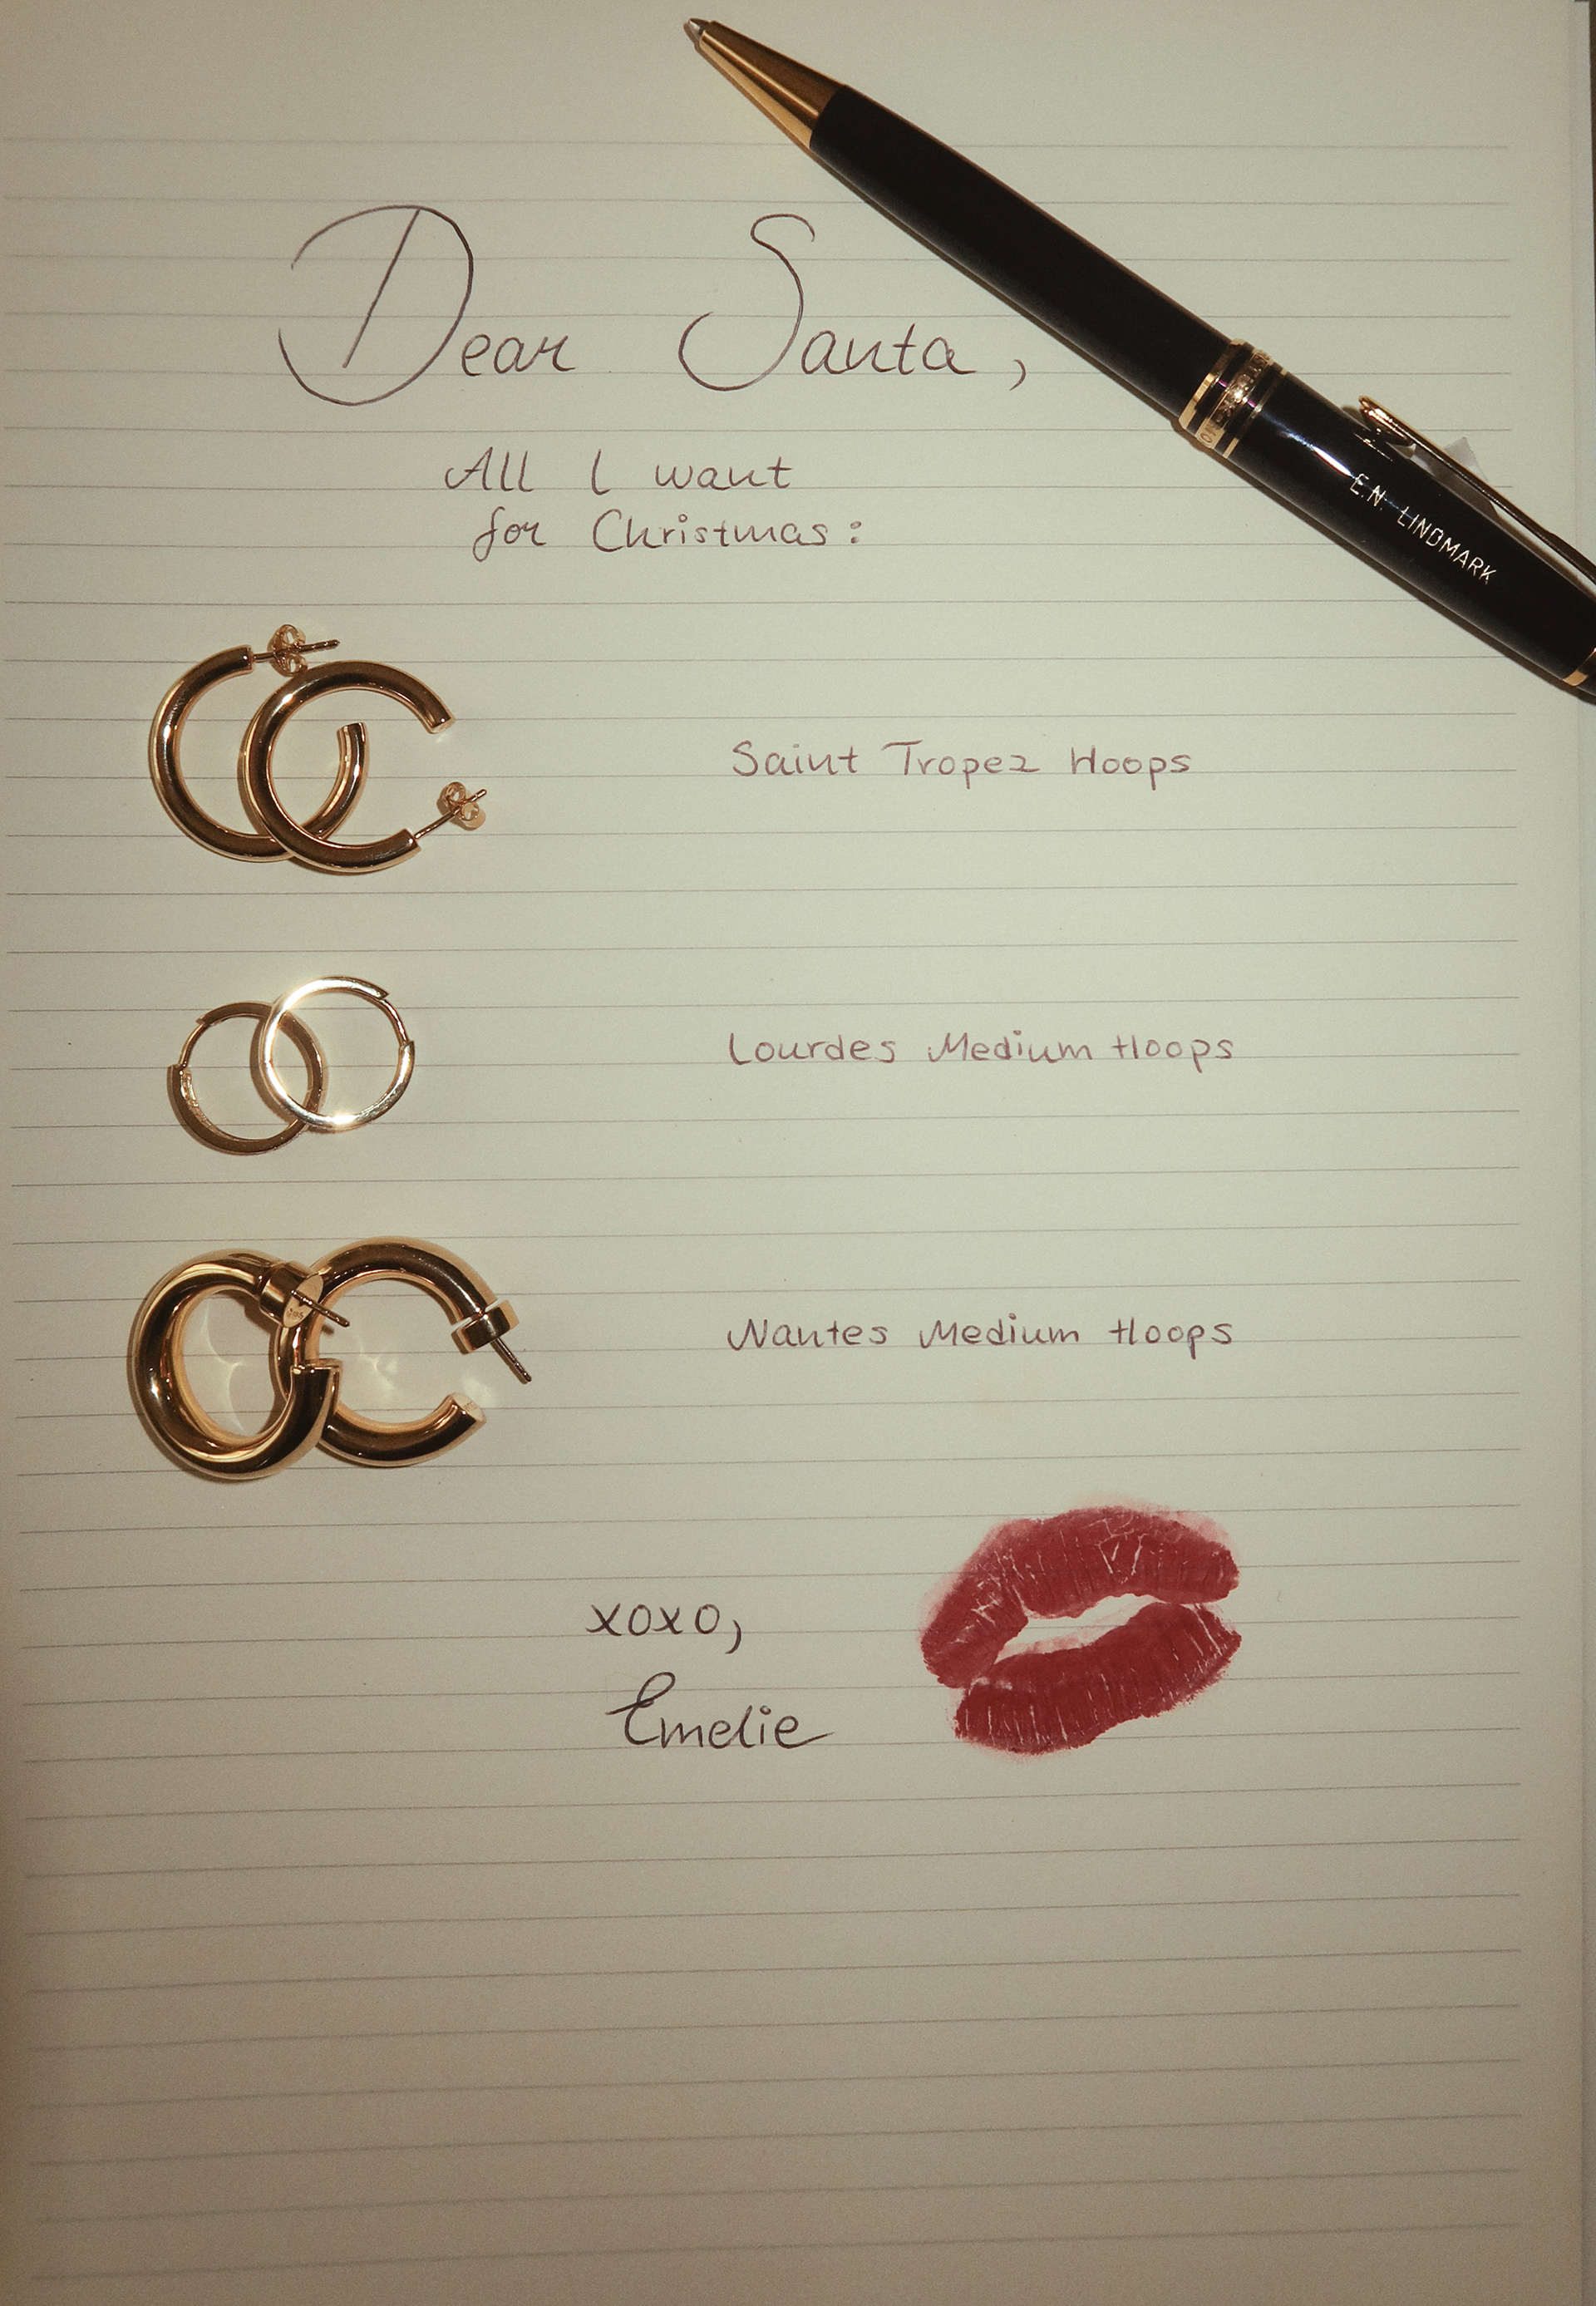 Dear Santa,
All I want
for Christmas:
E.N. LINDMARK
Saint Tropez Hoops
Lourdes Medium Hoops
Nantes Medium Hoops
xoxo,
Emelie